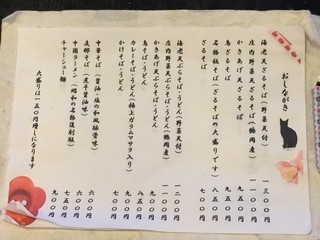 おしながき
海老天ざるそば(野菜天付) 一三〇〇円
庄内麩天ざるそば(鶴岡産) 一一〇〇円
かき揚げ天ざるそば 九五〇円
鳥ざるそば 八五〇円
名物板そば(ざるそばの大盛りです) 九五〇円
ざるそば 七〇〇円
海老天ぷらそば・うどん(野菜天付) 一二〇〇円
庄内麩天ぷらそば・うどん(鶴岡産) 一〇〇〇円
かきあげ天ぷらそば・うどん 九〇〇円
鳥そば・うどん 八五〇円
カレーそば・うどん(極上ガラムマサラ入り) 九〇〇円
かけそば・うどん 七〇〇円
中華そば(正油・塩の和風豚骨味) 六〇〇円
鳥中そば(鳥骨醤油味) 六〇〇円
中国ラーメン(昭和の名物復刻版) 七五〇円
チャーシュー麺 九〇〇円
大盛りは一五〇円増しになります